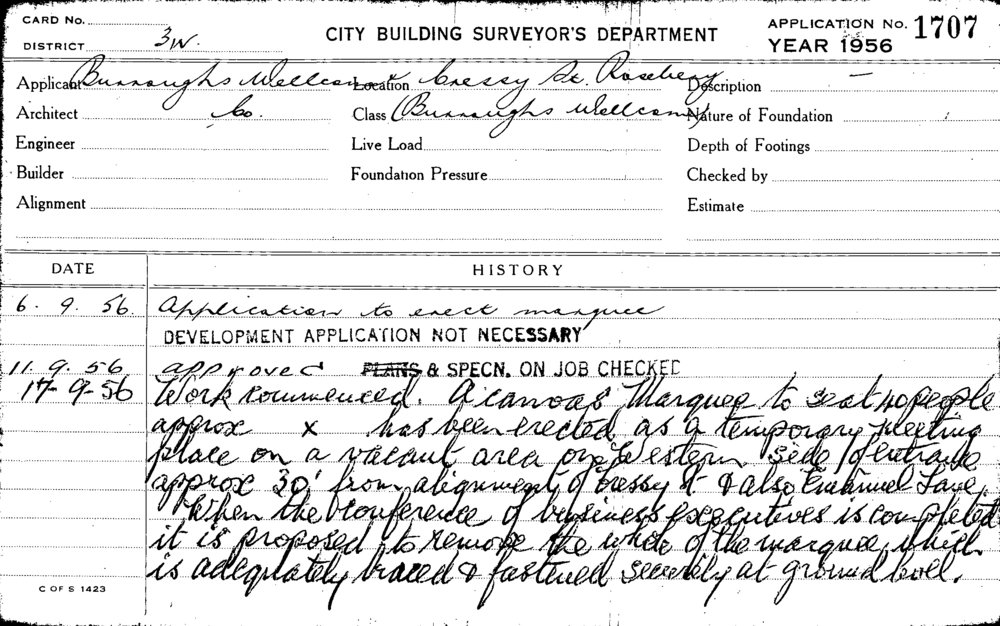 CARD No.
DISTRICT 3W.
CITY BUILDING SURVEYOR'S DEPARTMENT
APPLICATION No. 1707
YEAR 1956
Applicant Burroughs Wellcome Location Cressy St. Rosebery Description —
Architect Co. Class (Burroughs Wellcome) Nature of Foundation
Engineer Live Load Depth of Footings
Builder Foundation Pressure Checked by
Alignment Estimate
DATE HISTORY
6. 9. 56. Application to erect marquee
DEVELOPMENT APPLICATION NOT NECESSARY
11. 9. 56 approved PLANS & SPECN. ON JOB CHECKED
17-9-56 Work commenced. A canvas Marquee to seat 40 people
approx x has been erected as a temporary meeting
place on a vacant area on Western side of entrance
approx 30' from alignment of Cressy St & also Emanuel Lane.
When the conference of business executives is completed
it is proposed to remove the whole of the marquee, which
is adequately braced & fastened securely at ground level.
C OF S 1423